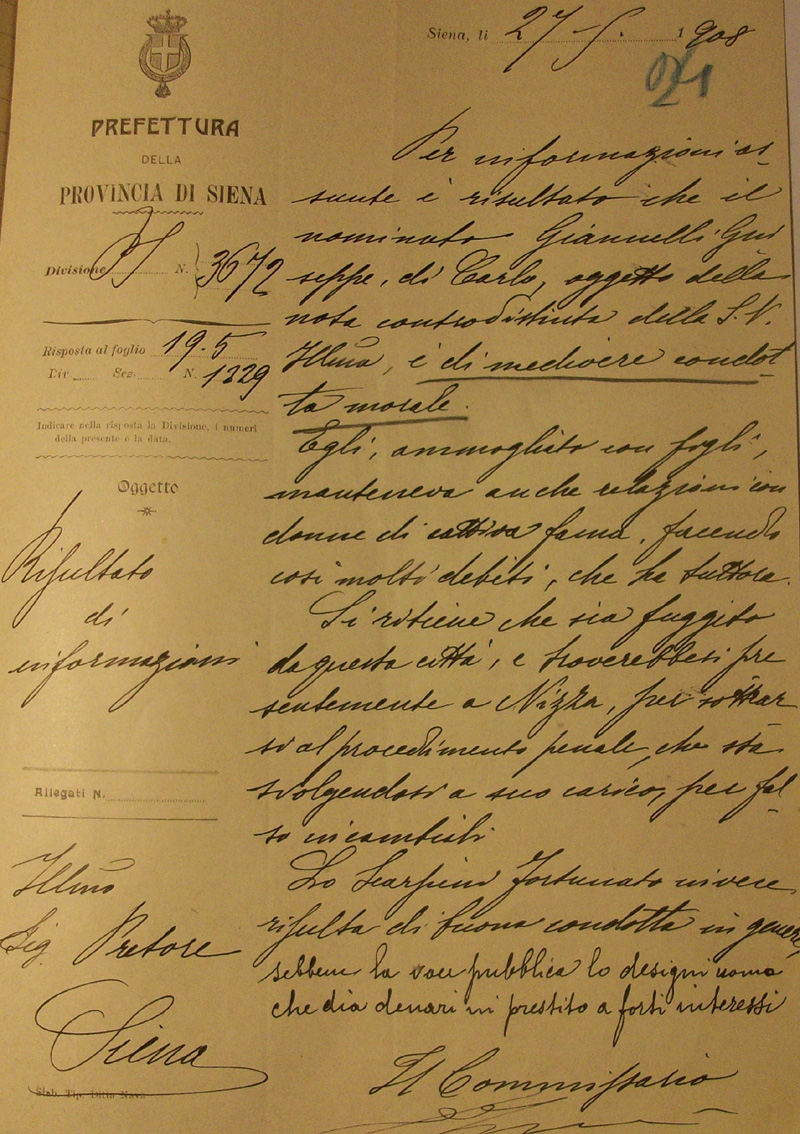 Siena, lì 27-5. 1908
21
PREFETTURA
DELLA
PROVINCIA DI SIENA
Divisione PS N. 3672
Risposta al foglio 19.5
Div. Sez. N. 1329
Indicare nella risposta la Divisione, i numeri
della presente e la data.
Oggetto
Risultato
di
informazioni
Allegati N.
Illmo
Sig Pretore
Siena
Stab. Tip. Ditta Nava
Per informazioni as-
sunte è risultato che il
nominato Giannelli Giu
seppe, di Carlo, oggetto della
nota controdistinta della S.V.
Illma, è di mediocre condot
ta morale.
Egli, ammogliato con figli,
manteneva anche relazioni con
donne di cattiva fama, facendo
così molti debiti, che ha tuttora.
Si ritiene che sia fuggito
da questa città, e troverebbesi pre
sentemente a Nizza, per sottrar
si al procedimento penale, che sta
svolgendosi a suo carico, per fal-
so in cambiali.
Lo Scarpini Fortunato invece
risulta di buona condotta in genere,
sebbene la voce pubblica lo designi uomo
che dia denari in prestito a forti interessi
Il Commissario